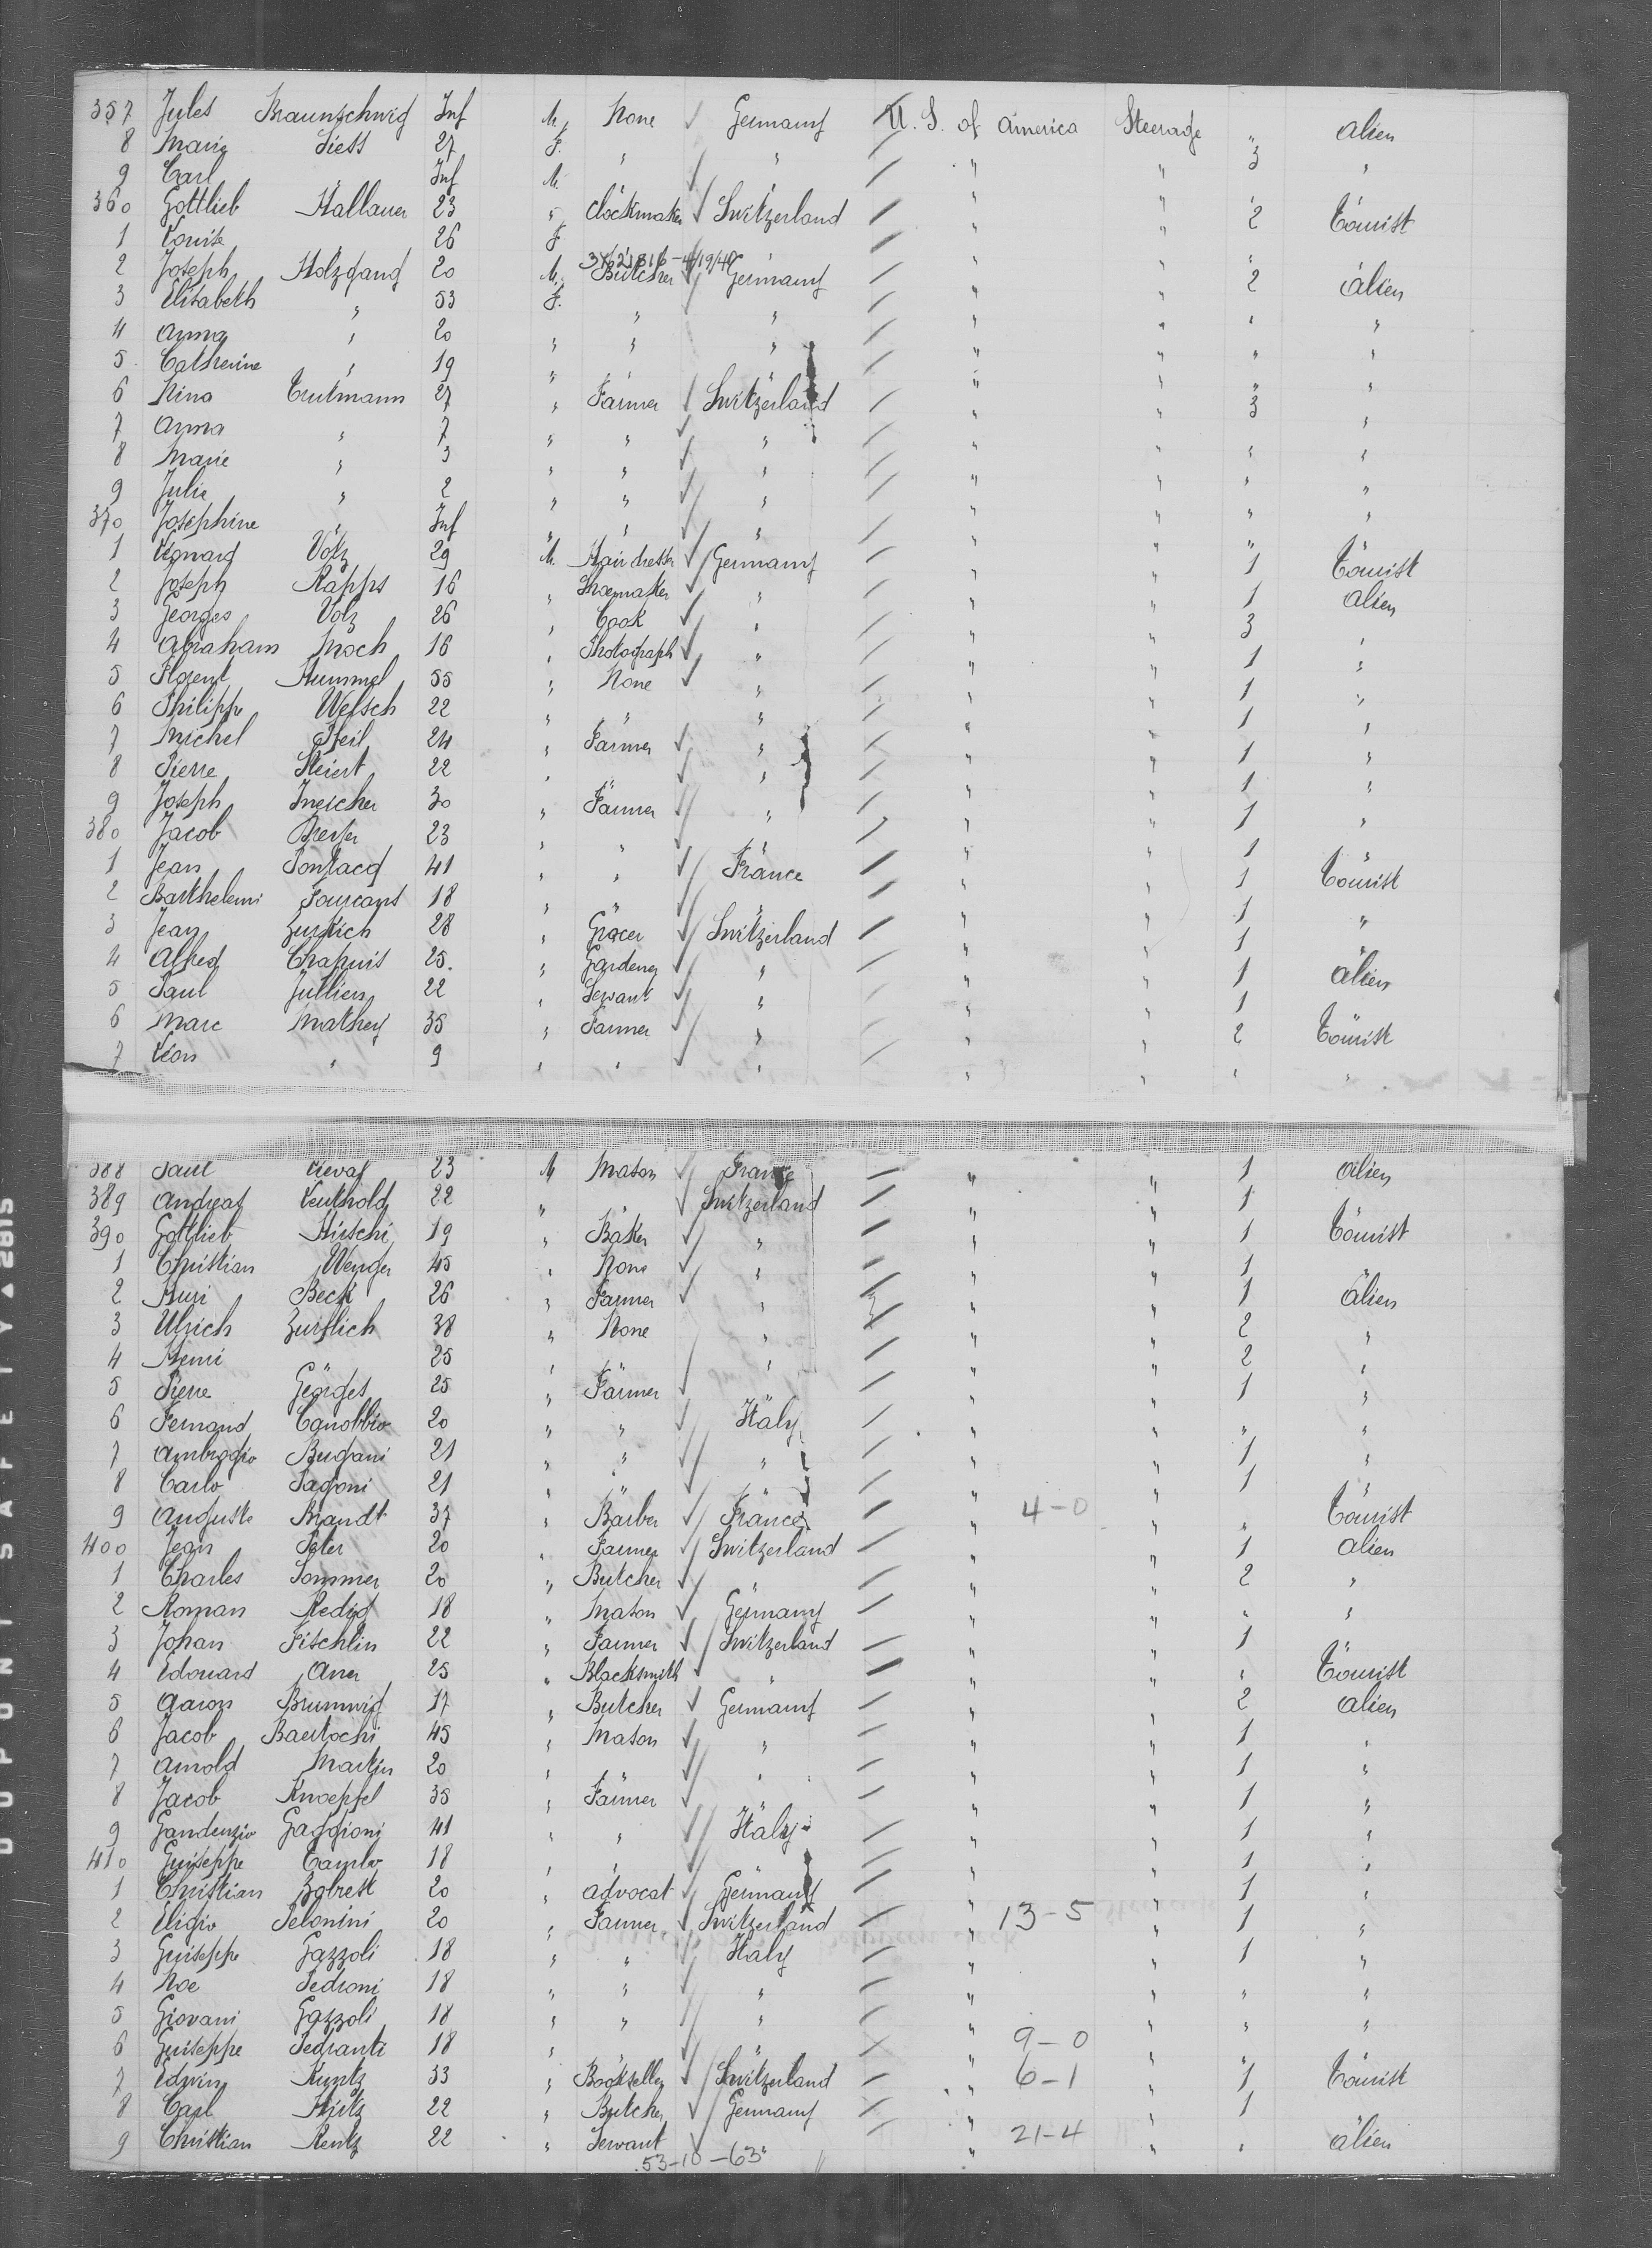 357 Jules Braunschwig Inf M. None Germany U. S. of America Steerage " alien
8 Marie Siess 27 F. " " " " 3 "
9 Carl " Inf M. " "
360 Gottlieb Hallauer 23 " Clockmaker Switzerland " " 2 Tourist
1 Louise 26 F. " " "
3X/21816-4/19/40
2 Joseph Holzgang 20 M. Butcher Germany " " 2 alien
3 Elisabeth " 53 F. " " " " " "
4 Anna " 20 " " " " " " "
5 Catherine " 19 " " " " " " "
6 Nina Trutmann 27 " Farmer Switzerland " " 3 "
7 Anna " 7 " " " " " " "
8 Marie " 3 " " " " " " "
9 Julie " 2 " " " " " " "
370 Josephine " Inf " " " " " "
1 Léonard Volz 29 M. Hairdresser Germany " " 1 Tourist
2 Joseph Rapps 16 " Shoemaker " " " 1 alien
3 Georges Volz 26 " Cook " " " 3 "
4 Abraham Moch 16 " Photograph " " " 1 "
5 Florent Hummel 55 " None " " " 1 "
6 Philippe Welsch 22 " " " " " 1 "
7 Michel Heil 24 " Farmer " " " 1 "
8 Pierre Steiert 22 " " " " " 1 "
9 Joseph Ineicher 30 " Farmer " " " 1 "
380 Jacob 23 " " " " 1
1 Jean 41 " " France " " 1 Tourist
2 Barthelemi 18 " " " " " 1 "
3 Jean Zurflich 28 " Grocer Switzerland " " 1 "
4 Alfred Chapuis 25. " Gardener " " " 1 alien
5 Paul Jullien 22 " Servant " " " 1 "
6 Marc Mathey 35 " Farmer " " " 2 Tourist
7 Léon " 9 " " " " " " "
388 Paul 23 M Mason France " " 1 alien
389 Andreas Leuthold 22 " Switzerland " " 1
390 Gottlieb Hirschi 19 " Baker " " " 1 Tourist
1 Christian Wenger 45 " None " " " 1 "
2 Beck 26 " Farmer " " " 1 alien
3 Ulrich Zurflich 38 " None " " " 2 "
4 Henri 25 " " " " " 2 "
5 Pierre Georges 25 " Farmer " " 1 "
6 Fernand Canobbio 20 " " Italy " " " "
7 Ambrogio Bugani 21 " " " " " 1 "
8 Carlo Pagoni 21 " " " " " 1 "
9 Auguste Brandt 37 " Barber France " 4-0 " " Tourist
400 Jean Peter 20 " Farmer Switzerland " " 1 alien
1 Charles Sommer 20 " Butcher " " " 2 "
2 Roman Redig 18 " Mason Germany " " " "
3 Johan Fischlin 22 " Farmer Switzerland " " 1
4 Edouard 25 " Blacksmith " " " " Tourist
5 Aaron Brunnwig 17 " Butcher Germany " " 2 alien
6 Jacob Baertochi 45 " Mason " " " 1 "
7 Arnold Martin 20 " " " " " 1 "
8 Jacob Knoepfel 35 " Farmer " " 1 "
9 Gaudenzio Gaggioni 41 " " Italy " " 1 "
410 Guiseppe 18 " " " " " 1 "
1 Christian Zobrest 20 " advocat Germany " " 1 "
2 Eligio Pelonini 20 " Farmer Switzerland " 13-5 " 1 "
3 Guiseppe Gazzoli 18 " " Italy " " 1 "
4 Noe Pedroni 18 " " " " " " "
5 Giovani Gazzoli 18 " " " " " " "
6 Guiseppe Pedranti 18 " " " " 9-0 " "
7 Edwin Kuntz 33 " Bookseller Switzerland " 6-1 " 1 Tourist
8 Carl Hirtz 22 " Butcher Germany " " 1
9 Christian Rentz 22 " Servant " " 21-4 " " alien
53-10-63
DUPONT SAFETY ▲ 2815